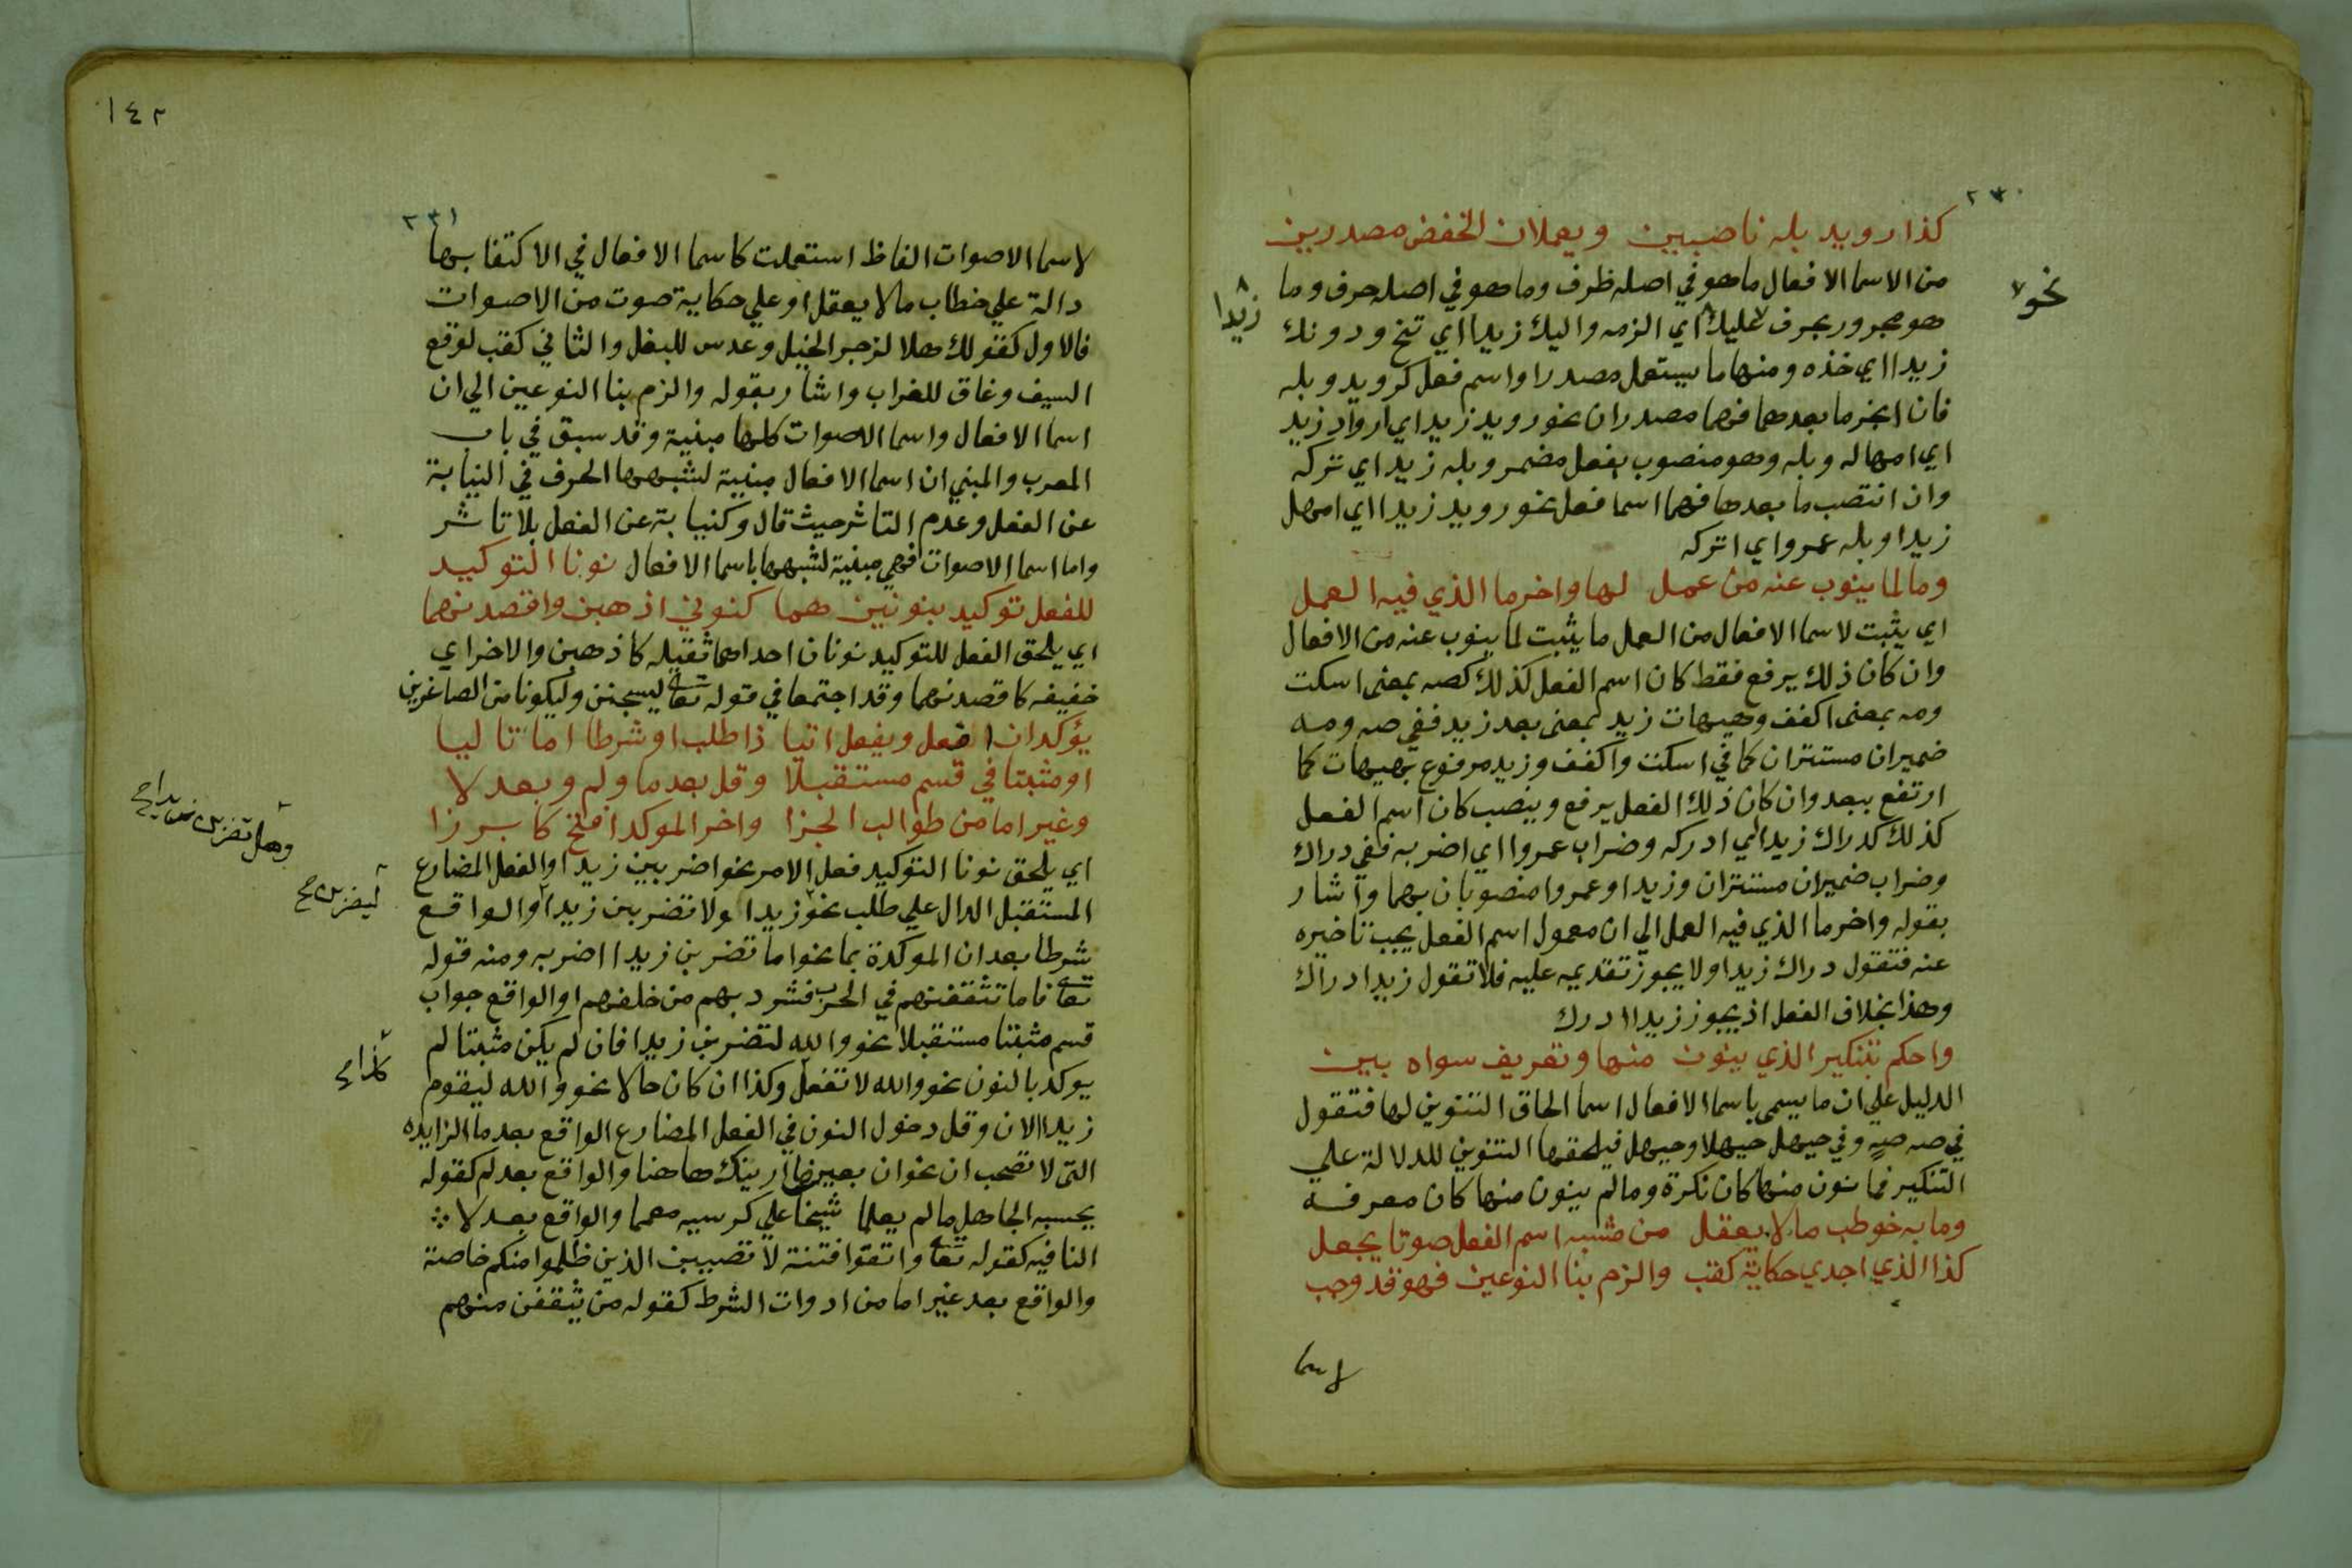 ٢٣٠
كذا رويد بله ناصبين ويعملان الخفض مصدرين
من الاسما الافعال ما هو في اصله ظرف وما هو في اصله حرف وما
نحو
هو مجرور بحرف عليك اي الزمه واليك زيدا اي تنح ودونك
زيدا
زيدا اي خذه ومنها ما يستعمل مصدرا واسم فعل كرويد وبله
فان انجر ما بعدهما فهما مصدران نحو رويد زيد اي ارواد زيد
اي امهاله وبله وهو منصوب بفعل مضمر وبله زيد اي تركه
وان انتصب ما بعدها فهما اسما فعل نحو رويد زيدا اي امهل
زيدا وبله عمروا اي اتركه
وما لما ينوب عنه من عمل لها واخر ما الذي فيه العمل
اي يثبت لاسما الافعال من العمل ما يثبت لما ينوب عنه من الافعال
وان كان ذلك يرفع فقط كان اسم الفعل كذلك كصه بمعنى اسكت
ومه بمعنى اكفف وهيهات زيد بمعنى بعد زيد ففي صه ومه
ضميران مستتران كما في اسكت واكفف وزيد مرفوع بهيهات كما
ارتفع ببعد وان كان ذلك الفعل يرفع وينصب كان اسم الفعل
كذلك كدراك زيدا اي ادركه وضراب عمروا اي اضربه ففي دراك
وضراب ضميران مستتران وزيدا وعمروا منصوبان بهما واشار
بقوله واخر ما الذي فيه العمل الي ان معمول اسم الفعل يجب تاخيره
عنه فتقول دراك زيدا ولا يجوز تقديمه عليه فلا تقول زيدا دراك
وهذا بخلاف الفعل اذ يجوز زيدا ادرك
واحكم بتنكير الذي ينون منها وتعريف سواه بين
الدليل علي ان ما يسمى باسما الافعال اسما الحاق التنوين لها فتقول
في صه صهٍ وفي حيهل حيهلا وحيهل فيلحقها التنوين للدلالة علي
التنكير فما نون منها كان نكرة وما لم ينون منها كان معرفه
وما به خوطب ما لا يعقل من مشبه اسم الفعل صوتا يجعل
كذا الذي اجدي حكاية كقب والزم بنا النوعين فهو قد وجب
لاسما
١٤٢
٢٣١
لاسما الاصوات الفاظ استعملت كاسما الافعال في الاكتفا بها
دالة علي خطاب ما لا يعقل او علي حكاية صوت من الاصوات
فالاول كقولك هلا لزجر الخيل وعدس للبغل والثاني كقب لوقع
السيف وغاق للغراب واشار بقوله والزم بنا النوعين الي ان
اسما الافعال واسما الاصوات كلها مبنية وقد سبق في باب
المعرب والمبني ان اسما الافعال مبنية لشبهها الحرف في النيابة
عن الفعل وعدم التاثر حيث قال وكنيابة عن الفعل بلا تاثر
واما اسما الاصوات فهي مبنية لشبهها باسما الافعال نونا التوكيد
للفعل توكيد بنونين هما كنوني اذهبن واقصدنهما
اي يلحق الفعل للتوكيد نونان احداهما ثقيله كاذهبن والاخراي
خفيفه كاقصدنهما وقد اجتمعا في قوله تعالى ليسجنن وليكونا من الصاغرين
يؤكدان افعل ويفعل اتيا ذا طلب او شرطا اما تاليا
او مثبتا في قسم مستقبلا وقل بعد ما ولم وبعد لا
وغير اما من طوالب الجزا واخر الموكد افتح كابرزا
اي يلحق نونا التوكيد فعل الامر نحو اضربين زيدا والفعل المضارع
المستقبل الدال علي طلب نحو زيدا ولا تضربن زيدا والواقع
وهل تضربن زيدا صح
ليضربن صح
شرطا بعد ان الموكدة بما نحو اما تضربن زيدا اضربه ومنه قوله
تعالى فاما تثقفنهم في الحرب فشرد بهم من خلفهم او الواقع جواب
قسم مثبتا مستقبلا نحو والله لتضربن زيدا فان لم يكن مثبتا لم
يوكد بالنون نحو والله لا تفعل وكذا ان كان حالا نحو والله ليقوم
زيدا الان وقل دخول النون في الفعل المضارع الواقع بعد ما الزايده
التي لا تصحب ان نحو ان بعين ما ارينك هاهنا والواقع بعد لم كقوله
يحسبه الجاهل ما لم يعلما شيخا علي كرسيه معمما والواقع بعد لا
النافيه كقوله تعالى واتقوا فتنة لا تصيبن الذين ظلموا منكم خاصة
والواقع بعد غير اما من ادوات الشرط كقوله من يثقفن منهم